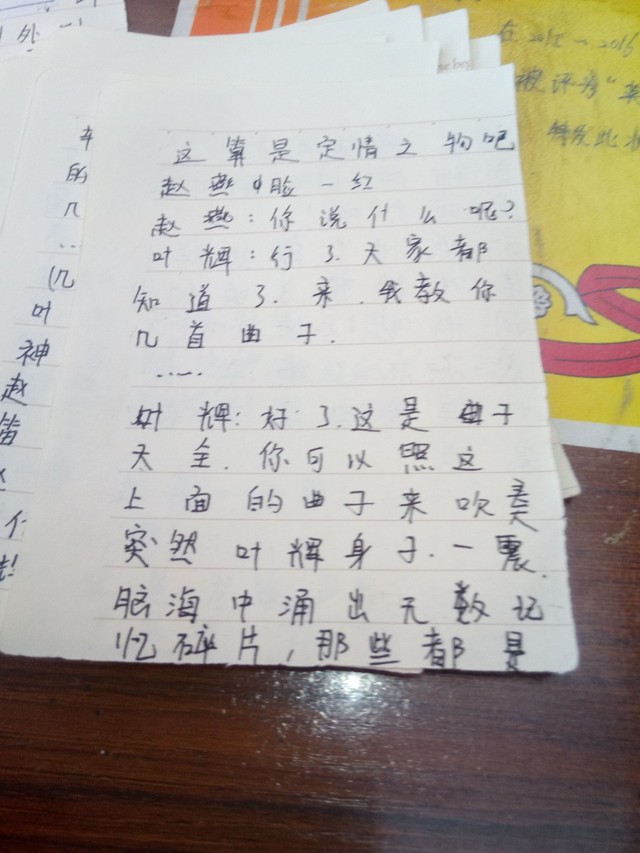 这算是定情之物吧
赵燕脸一红
赵燕:你说什么呢?
叶辉:行了.大家都
知道了.来.我教你
几首曲子.
……
叶辉:好了.这是曲子
大全.你可以照这
上面的曲子来吹奏
突然叶辉身子.一震.
脑海中涌出无数记
忆碎片,那些都是
的
几
..
叶
神
赵
笛
在2015-2016
被评为"
特发此